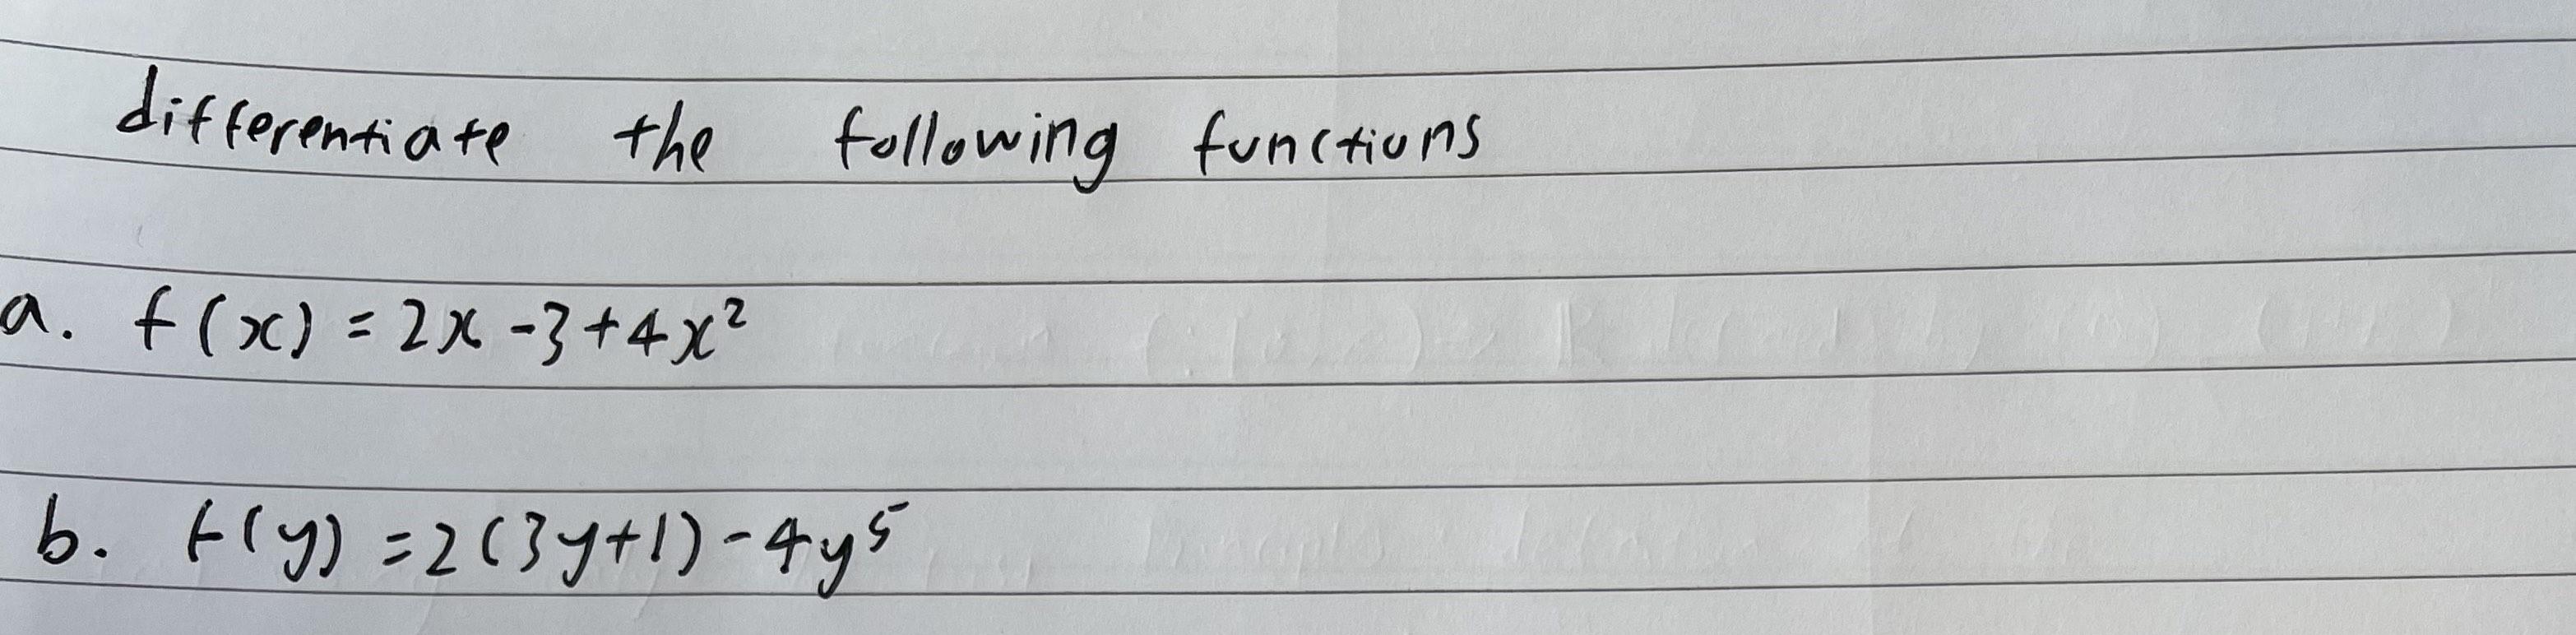 differentiate the following functions
a. f(x) = 2x - 3 + 4x²
b. f(y) = 2(3y+1) - 4y⁵